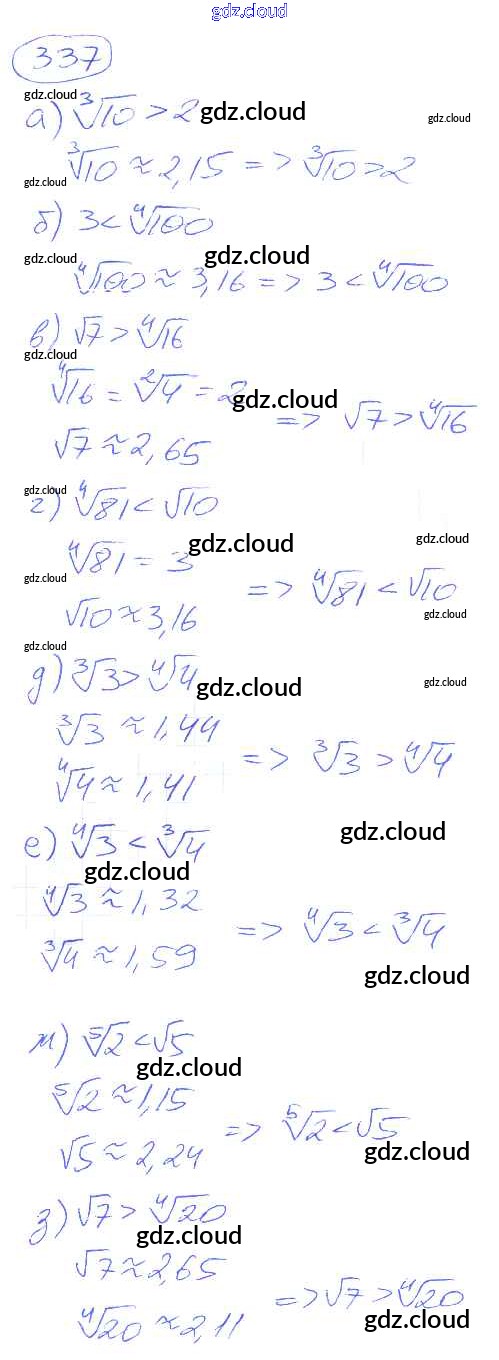 gdz.cloud
337
gdz.cloud
а) ∛10 > 2 gdz.cloud gdz.cloud
∛10 ≈ 2,15 => ∛10 > 2
gdz.cloud
б) 3 < ∜100
gdz.cloud gdz.cloud
∜100 ≈ 3,16 => 3 < ∜100
в) √7 > ∜16
gdz.cloud
∜16 = ²√4 = 2 gdz.cloud
=> √7 > ∜16
√7 ≈ 2,65
gdz.cloud
г) ∜81 < √10
gdz.cloud gdz.cloud
∜81 = 3
gdz.cloud
=> ∜81 < √10
√10 ≈ 3,16 gdz.cloud
gdz.cloud
д) ∛3 > ∜4 gdz.cloud gdz.cloud
∛3 ≈ 1,44
=> ∛3 > ∜4
∜4 ≈ 1,41
gdz.cloud
е) ∜3 < ∛4
gdz.cloud
∜3 ≈ 1,32
=> ∜3 < ∛4
∛4 ≈ 1,59
gdz.cloud
ж) ⁵√2 < √5
gdz.cloud
⁵√2 ≈ 1,15
=> ⁵√2 < √5
√5 ≈ 2,24 gdz.cloud
з) √7 > ∜20
gdz.cloud
√7 ≈ 2,65
=> √7 > ∜20
∜20 ≈ 2,11 gdz.cloud